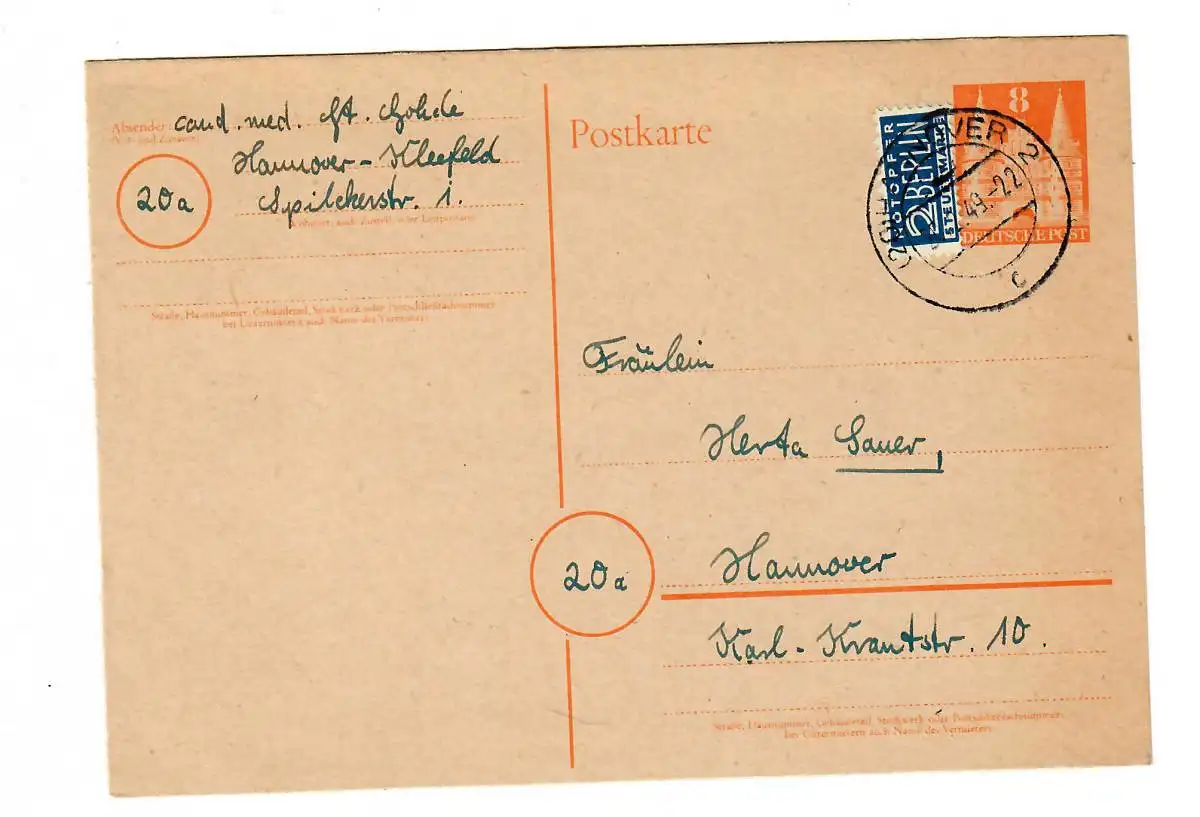 Absender:
cand. med. Gt. Gohde
Hannover - Kleefeld
20a
Spilckerstr. 1.
Wohnort, auch Zustell- oder Leitpostamt
Straße, Hausnummer, Gebäudeteil, Stockwerk oder Postschließfachnummer
bei Untermietern auch Name des Vermieters
Postkarte
NOTOPFER
2 BERLIN
STEUERMARKE
8
DEUTSCHE POST
(20a) HANNOVER 2
49.-22
c
Fräulein
Herta Sauer,
20a
Hannover
Karl-Krautstr. 10.
Straße, Hausnummer, Gebäudeteil, Stockwerk oder Postschließfachnummer
bei Untermietern auch Name des Vermieters